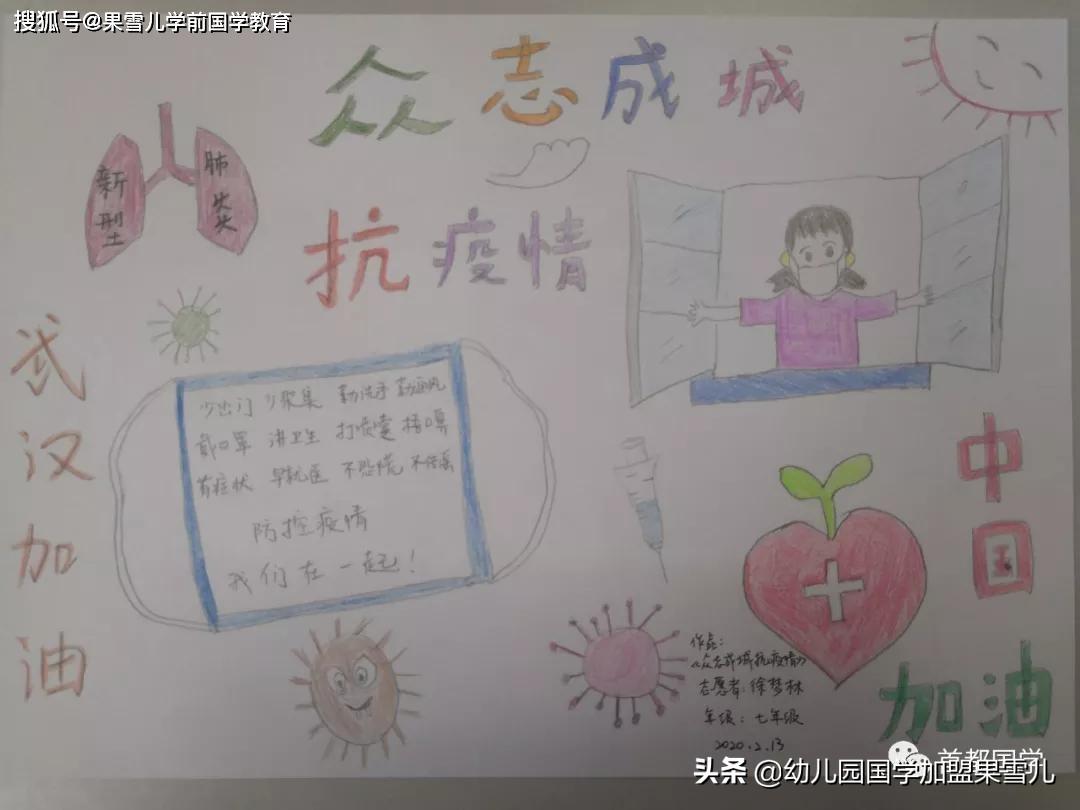 搜狐号@果雪儿学前国学教育
众志成城
抗疫情
新型
肺炎
武汉加油
少出门 少聚集 勤洗手 勤通风
戴口罩 讲卫生 打喷嚏 捂口鼻
有症状 早就医 不恐慌 不传谣
防控疫情
我们在一起！
中国
加油
作品：
《众志成城抗疫情》
志愿者：徐梦林
年级：七年级
2020.2.13
首都国学
头条 @幼儿园国学加盟果雪儿